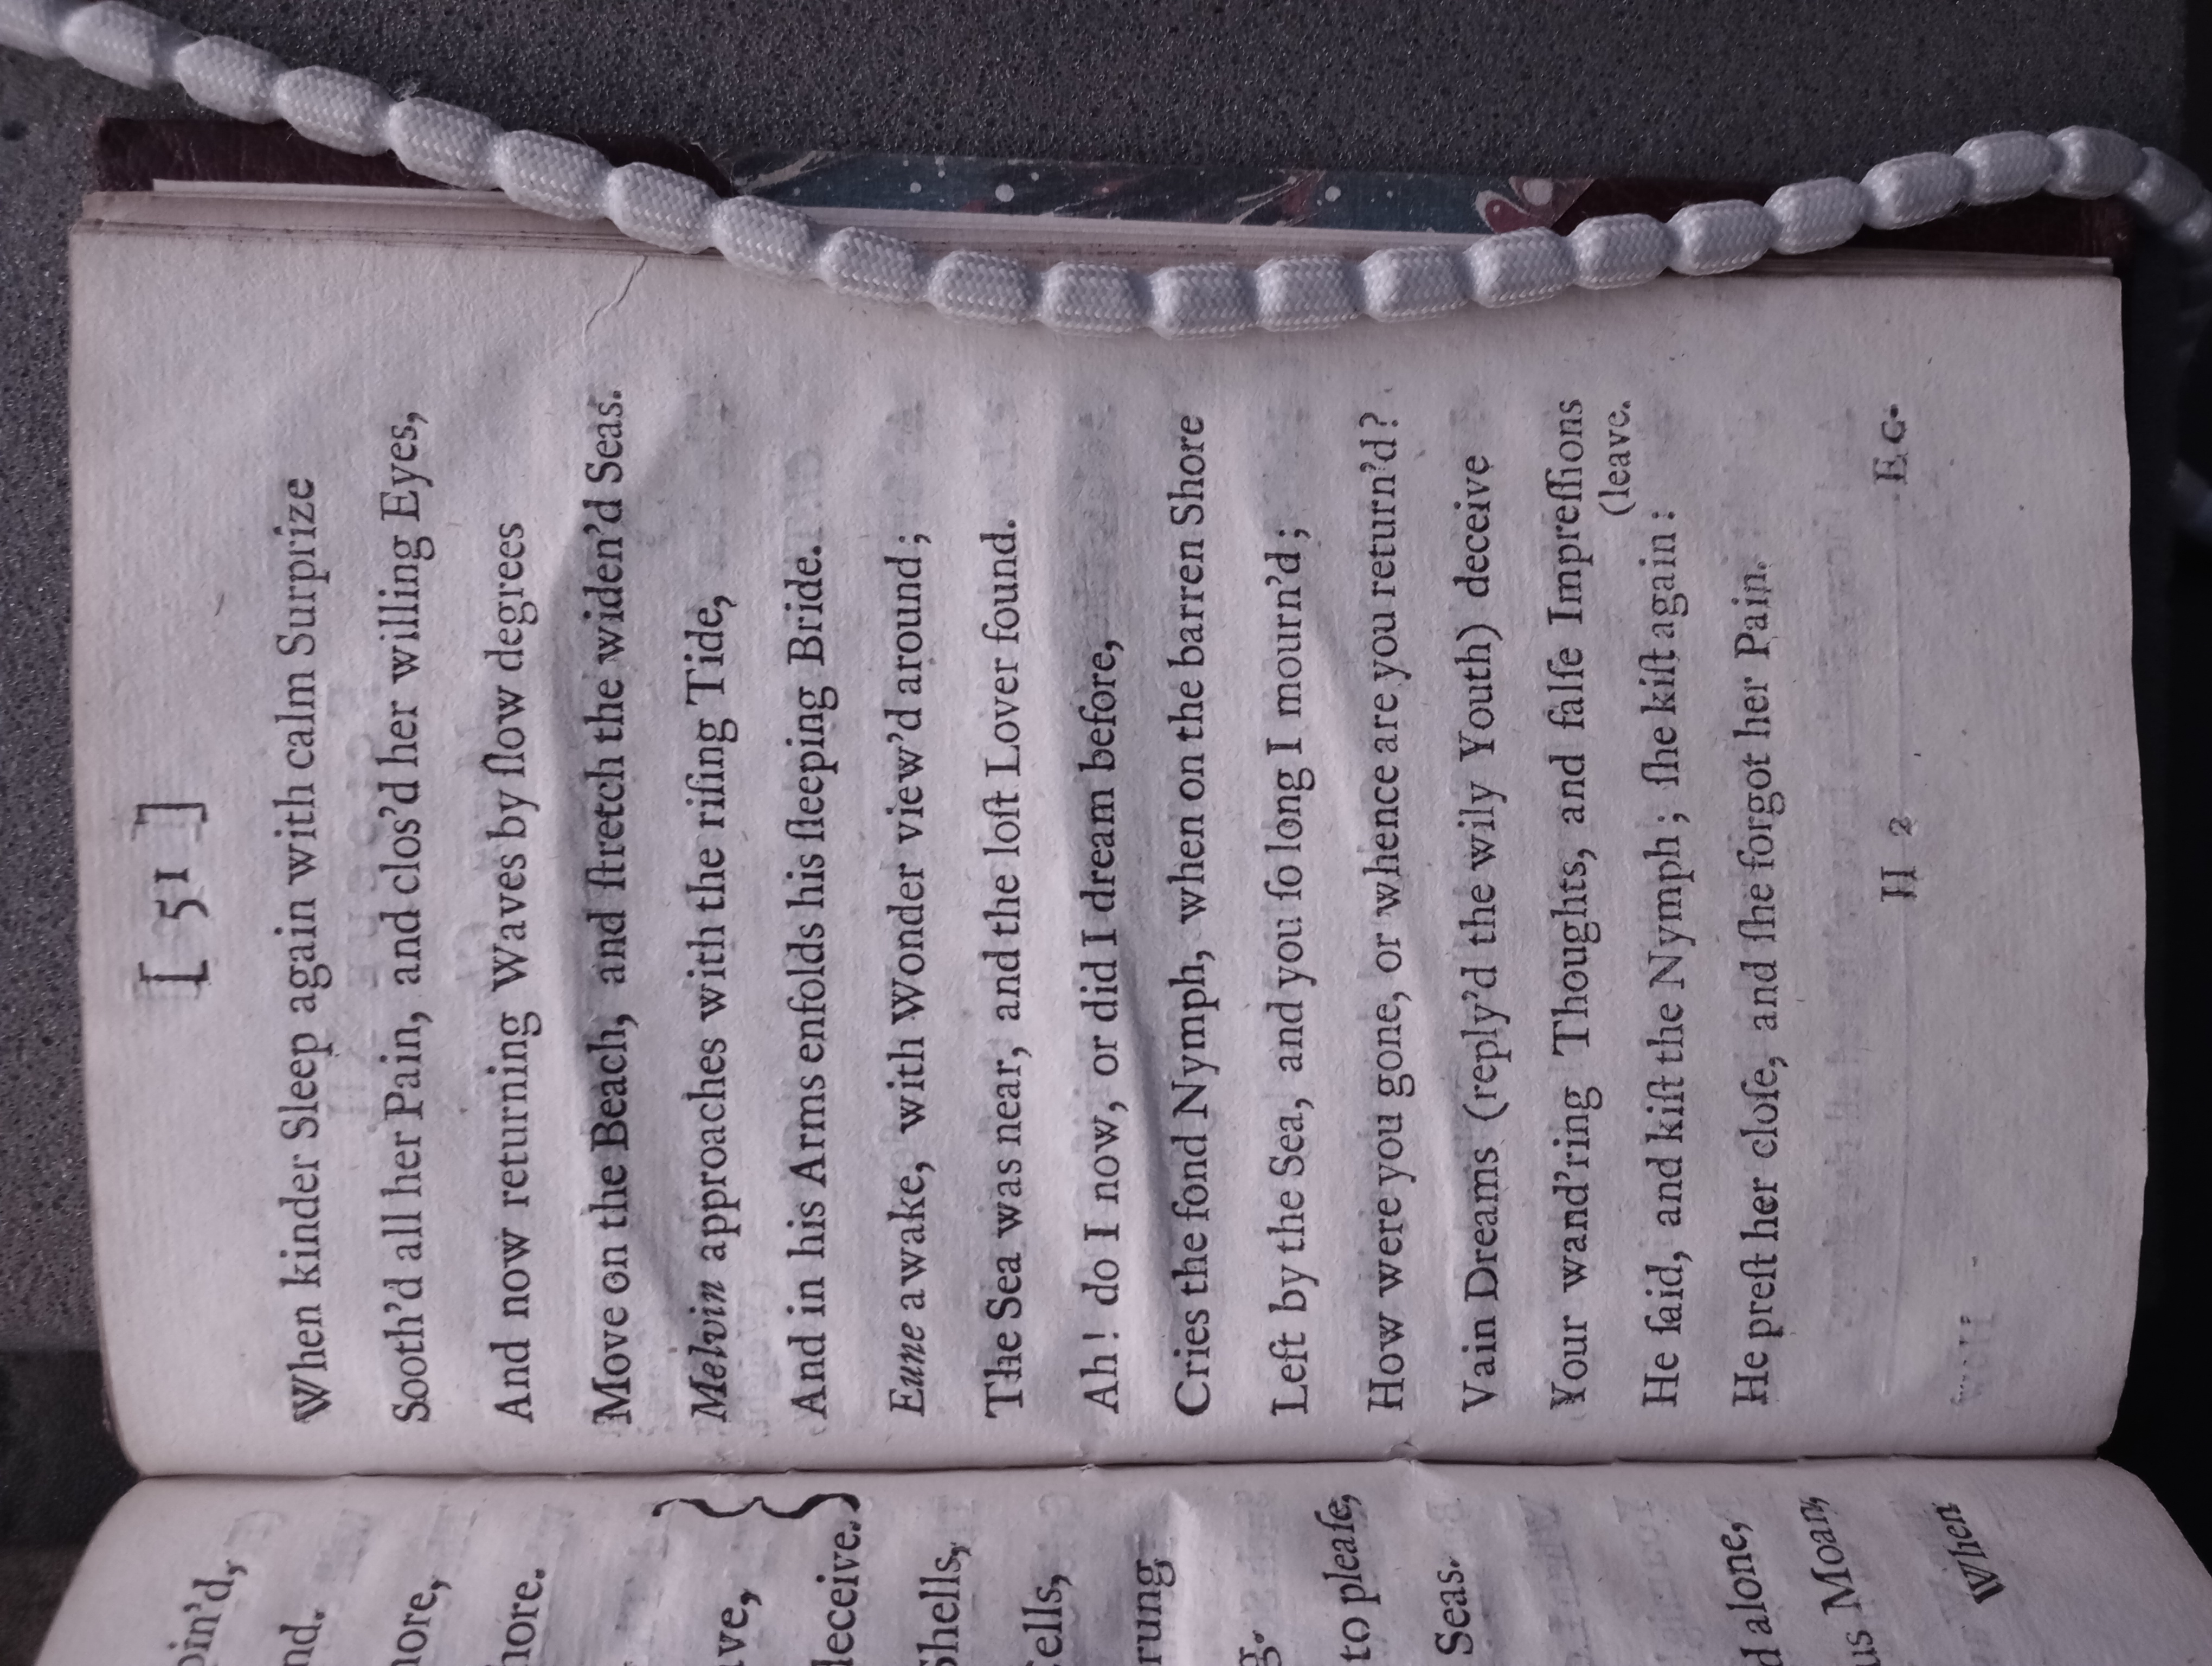 pin'd,
nd.
hore,
hore.
ave,
deceive.
Shells,
Cells,
rung
g.
to pleaſe,
Seas.
d alone,
us Moan,
When
[ 51 ]
When kinder Sleep again with calm Surprize
Sooth'd all her Pain, and clos'd her willing Eyes,
And now returning Waves by ſlow degrees
Move on the Beach, and ſtretch the widen'd Seas.
Melvin approaches with the riſing Tide,
And in his Arms enfolds his ſleeping Bride.
Eune awake, with Wonder view'd around;
The Sea was near, and the loſt Lover found.
Ah! do I now, or did I dream before,
Cries the fond Nymph, when on the barren Shore
Left by the Sea, and you ſo long I mourn'd;
How were you gone, or whence are you return'd?
Vain Dreams (reply'd the wily Youth) deceive
Your wand'ring Thoughts, and falſe Impreſſions
(leave.
He ſaid, and kiſt the Nymph; ſhe kiſt again:
He preſt her cloſe, and ſhe forgot her Pain.
H 2 Ec.